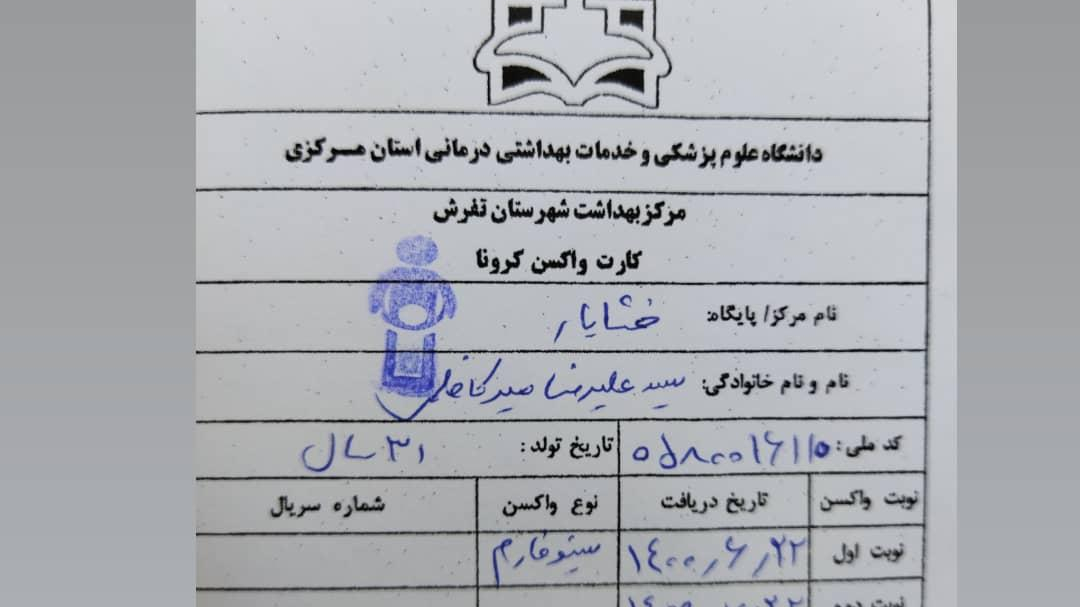 دانشگاه علوم پزشکی و خدمات بهداشتی درمانی استان مرکزی
مرکز بهداشت شهرستان تفرش
کارت واکسن کرونا
نام مرکز/ پایگاه: خشایار
نام و نام خانوادگی: سید علیرضا میرکاظمی
کد ملی: تاریخ تولد: ۳۱ سال
نوبت واکسن تاریخ دریافت نوع واکسن شماره سریال
نوبت اول ۱۴۰۰٫۶٫۲۲ سینوفارم
نوبت دوم